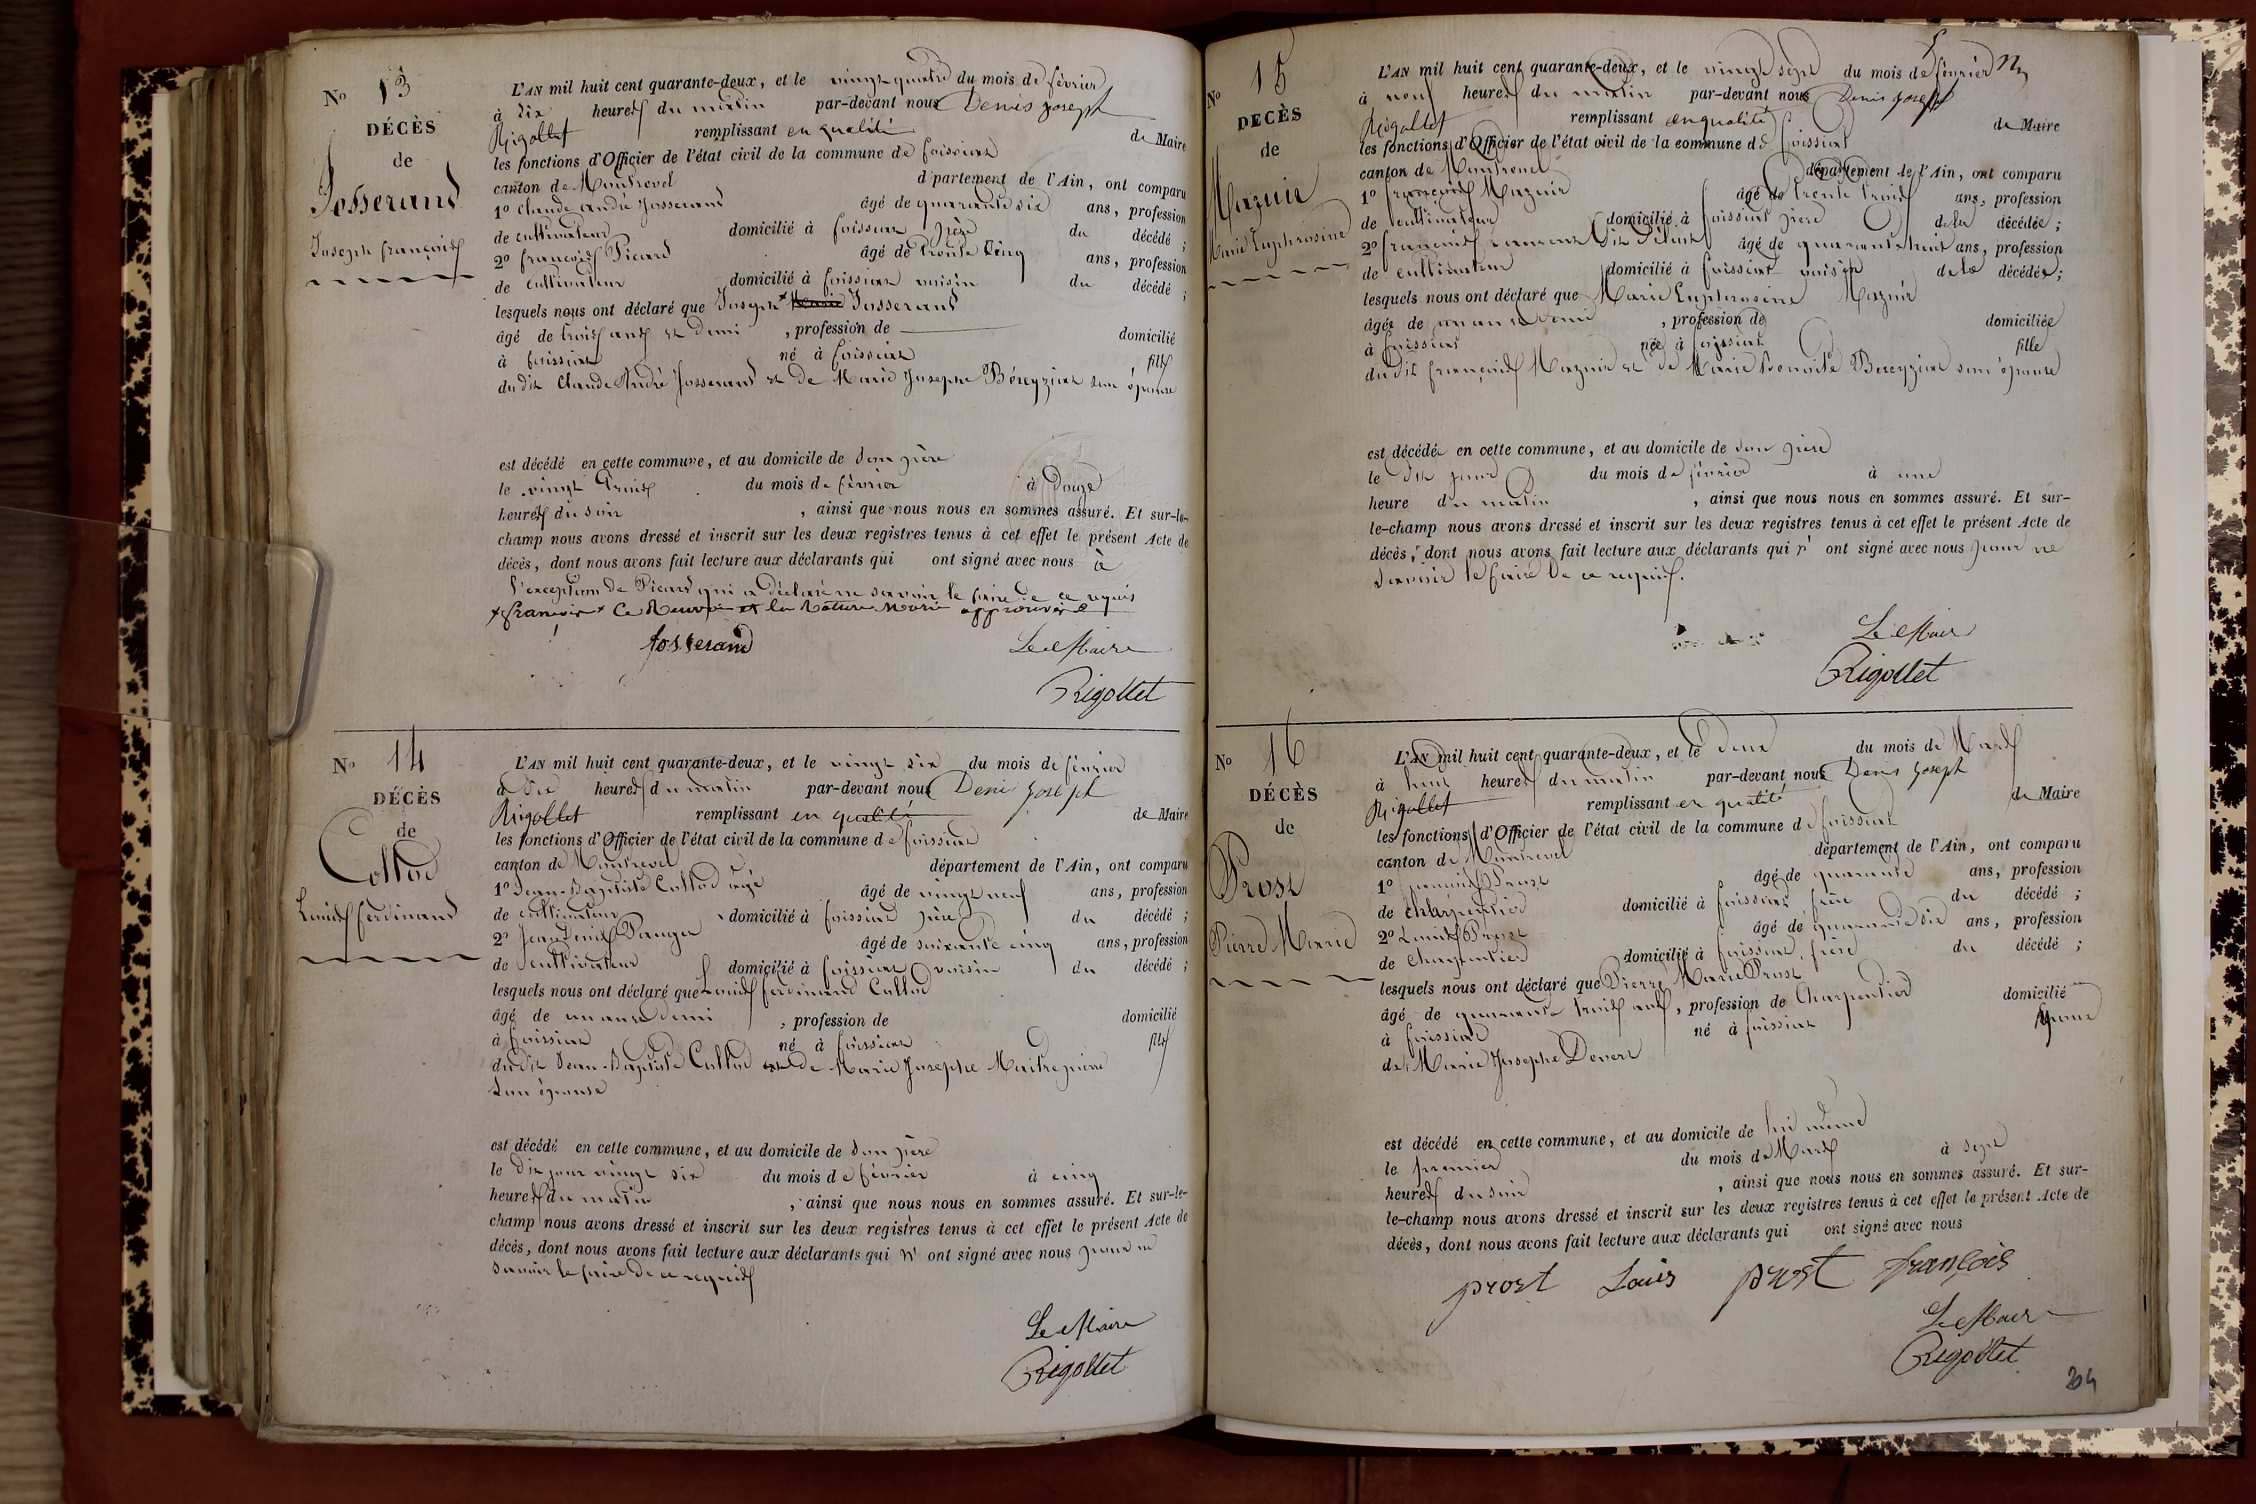 No 13
DÉCÈS
de
Josserand
Joseph françois
L'AN mil huit cent quarante-deux, et le vingt quatre du mois de février
à dix heures du matin par-devant nous Denis Joseph
Rigollet remplissant en qualité de Maire
les fonctions d'Officier de l'état civil de la commune de foissiat
canton de Montrevel département de l'Ain, ont comparu
1o Claude andré Josserand âgé de quarante six ans, profession
de cultivateur domicilié à foissiat père du décédé ;
2o françois Picard âgé de trente cinq ans, profession
de cultivateur domicilié à foissiat voisin du décédé ;
lesquels nous ont déclaré que Joseph + Marie Josserand
âgé de trois ans et demi , profession de domicilié
à foissiat né à foissiat fils
du dit Claude André Josserand et de Marie Josephe Béreyziat son épouse
est décédé en cette commune, et au domicile de son père
le vingt trois du mois de février à douze
heures du soir , ainsi que nous nous en sommes assuré. Et sur-le-
champ nous avons dressé et inscrit sur les deux registres tenus à cet effet le présent Acte de
décès, dont nous avons fait lecture aux déclarants qui ont signé avec nous à
l'exception de Picard qui a déclaré ne savoir le faire de ce requis
+ françois + Ce Renvoi et la Rature Marie approuvés
Josserand Le Maire
Rigollet
No 14
DÉCÈS
de
Collod
Louis ferdinand
L'AN mil huit cent quarante-deux, et le vingt six du mois de février
à dix heures du matin par-devant nous Denis Joseph
Rigollet remplissant en qualité de Maire
les fonctions d'Officier de l'état civil de la commune de foissiat
canton de Montrevel département de l'Ain, ont comparu
1o Jean-Baptiste Collod âgé âgé de vingt neuf ans, profession
de cultivateur domicilié à foissiat père du décédé ;
2o Jean Denis âgé de soixante cinq ans, profession
de cultivateur domicilié à foissiat voisin du décédé ;
lesquels nous ont déclaré que Louis ferdinand Collod
âgé de un an et demi , profession de domicilié
à foissiat né à foissiat fils
du dit Jean-Baptiste Collod et de Marie Josephe Maitrepierre
son épouse
est décédé en cette commune, et au domicile de son père
le dit jour vingt six du mois de février à cinq
heures du matin , ainsi que nous nous en sommes assuré. Et sur-le-
champ nous avons dressé et inscrit sur les deux registres tenus à cet effet le présent Acte de
décès, dont nous avons fait lecture aux déclarants qui n' ont signé avec nous pour ne
savoir le faire de ce requis
Le Maire
Rigollet
No 15
DÉCÈS
de
Mazuir
Marie Euphrosine
L'AN mil huit cent quarante-deux, et le vingt sept du mois de février
à neuf heures du matin par-devant nous Denis Joseph
Rigollet remplissant en qualité de Maire
les fonctions d'Officier de l'état civil de la commune de foissiat
canton de Montrevel département de l'Ain, ont comparu
1o françois Mazuir âgé de trente trois ans, profession
de cultivateur domicilié à foissiat père de la décédée ;
2o françois dit âgé de quarante huit ans, profession
de cultivateur domicilié à foissiat voisin de la décédée ;
lesquels nous ont déclaré que Marie Euphrosine Mazuir
âgée de un an et demi , profession de domiciliée
à foissiat née à foissiat fille
du dit françois Mazuir et de Marie Benoite Bereyziat son épouse
est décédée en cette commune, et au domicile de son père
le dit jour du mois de février à une
heure du matin , ainsi que nous nous en sommes assuré. Et sur-
le-champ nous avons dressé et inscrit sur les deux registres tenus à cet effet le présent Acte de
décès, dont nous avons fait lecture aux déclarants qui n' ont signé avec nous pour ne
savoir le faire de ce requis.
Le Maire
Rigollet
No 16
DÉCÈS
de
Prost
Pierre Marie
L'AN mil huit cent quarante-deux, et le deux du mois de Mars
à huit heures du matin par-devant nous Denis Joseph
Rigollet remplissant en qualité de Maire
les fonctions d'Officier de l'état civil de la commune de foissiat
canton de Montrevel département de l'Ain, ont comparu
1o françois Prost âgé de quarante ans, profession
de Charpentier domicilié à foissiat, frère du décédé ;
2o Louis Prost âgé de quarante six ans, profession
de Charpentier domicilié à foissiat, frère du décédé ;
lesquels nous ont déclaré que Pierre Marie Prost
âgé de quarante trois ans, profession de Charpentier domicilié
à foissiat né à foissiat époux
de Marie Josephe Devert
est décédé en cette commune, et au domicile de lui même
le premier du mois de Mars à sept
heures du soir , ainsi que nous nous en sommes assuré. Et sur-
le-champ nous avons dressé et inscrit sur les deux registres tenus à cet effet le présent Acte de
décès, dont nous avons fait lecture aux déclarants qui ont signé avec nous
prost Louis prost françois
Le Maire
Rigollet
204